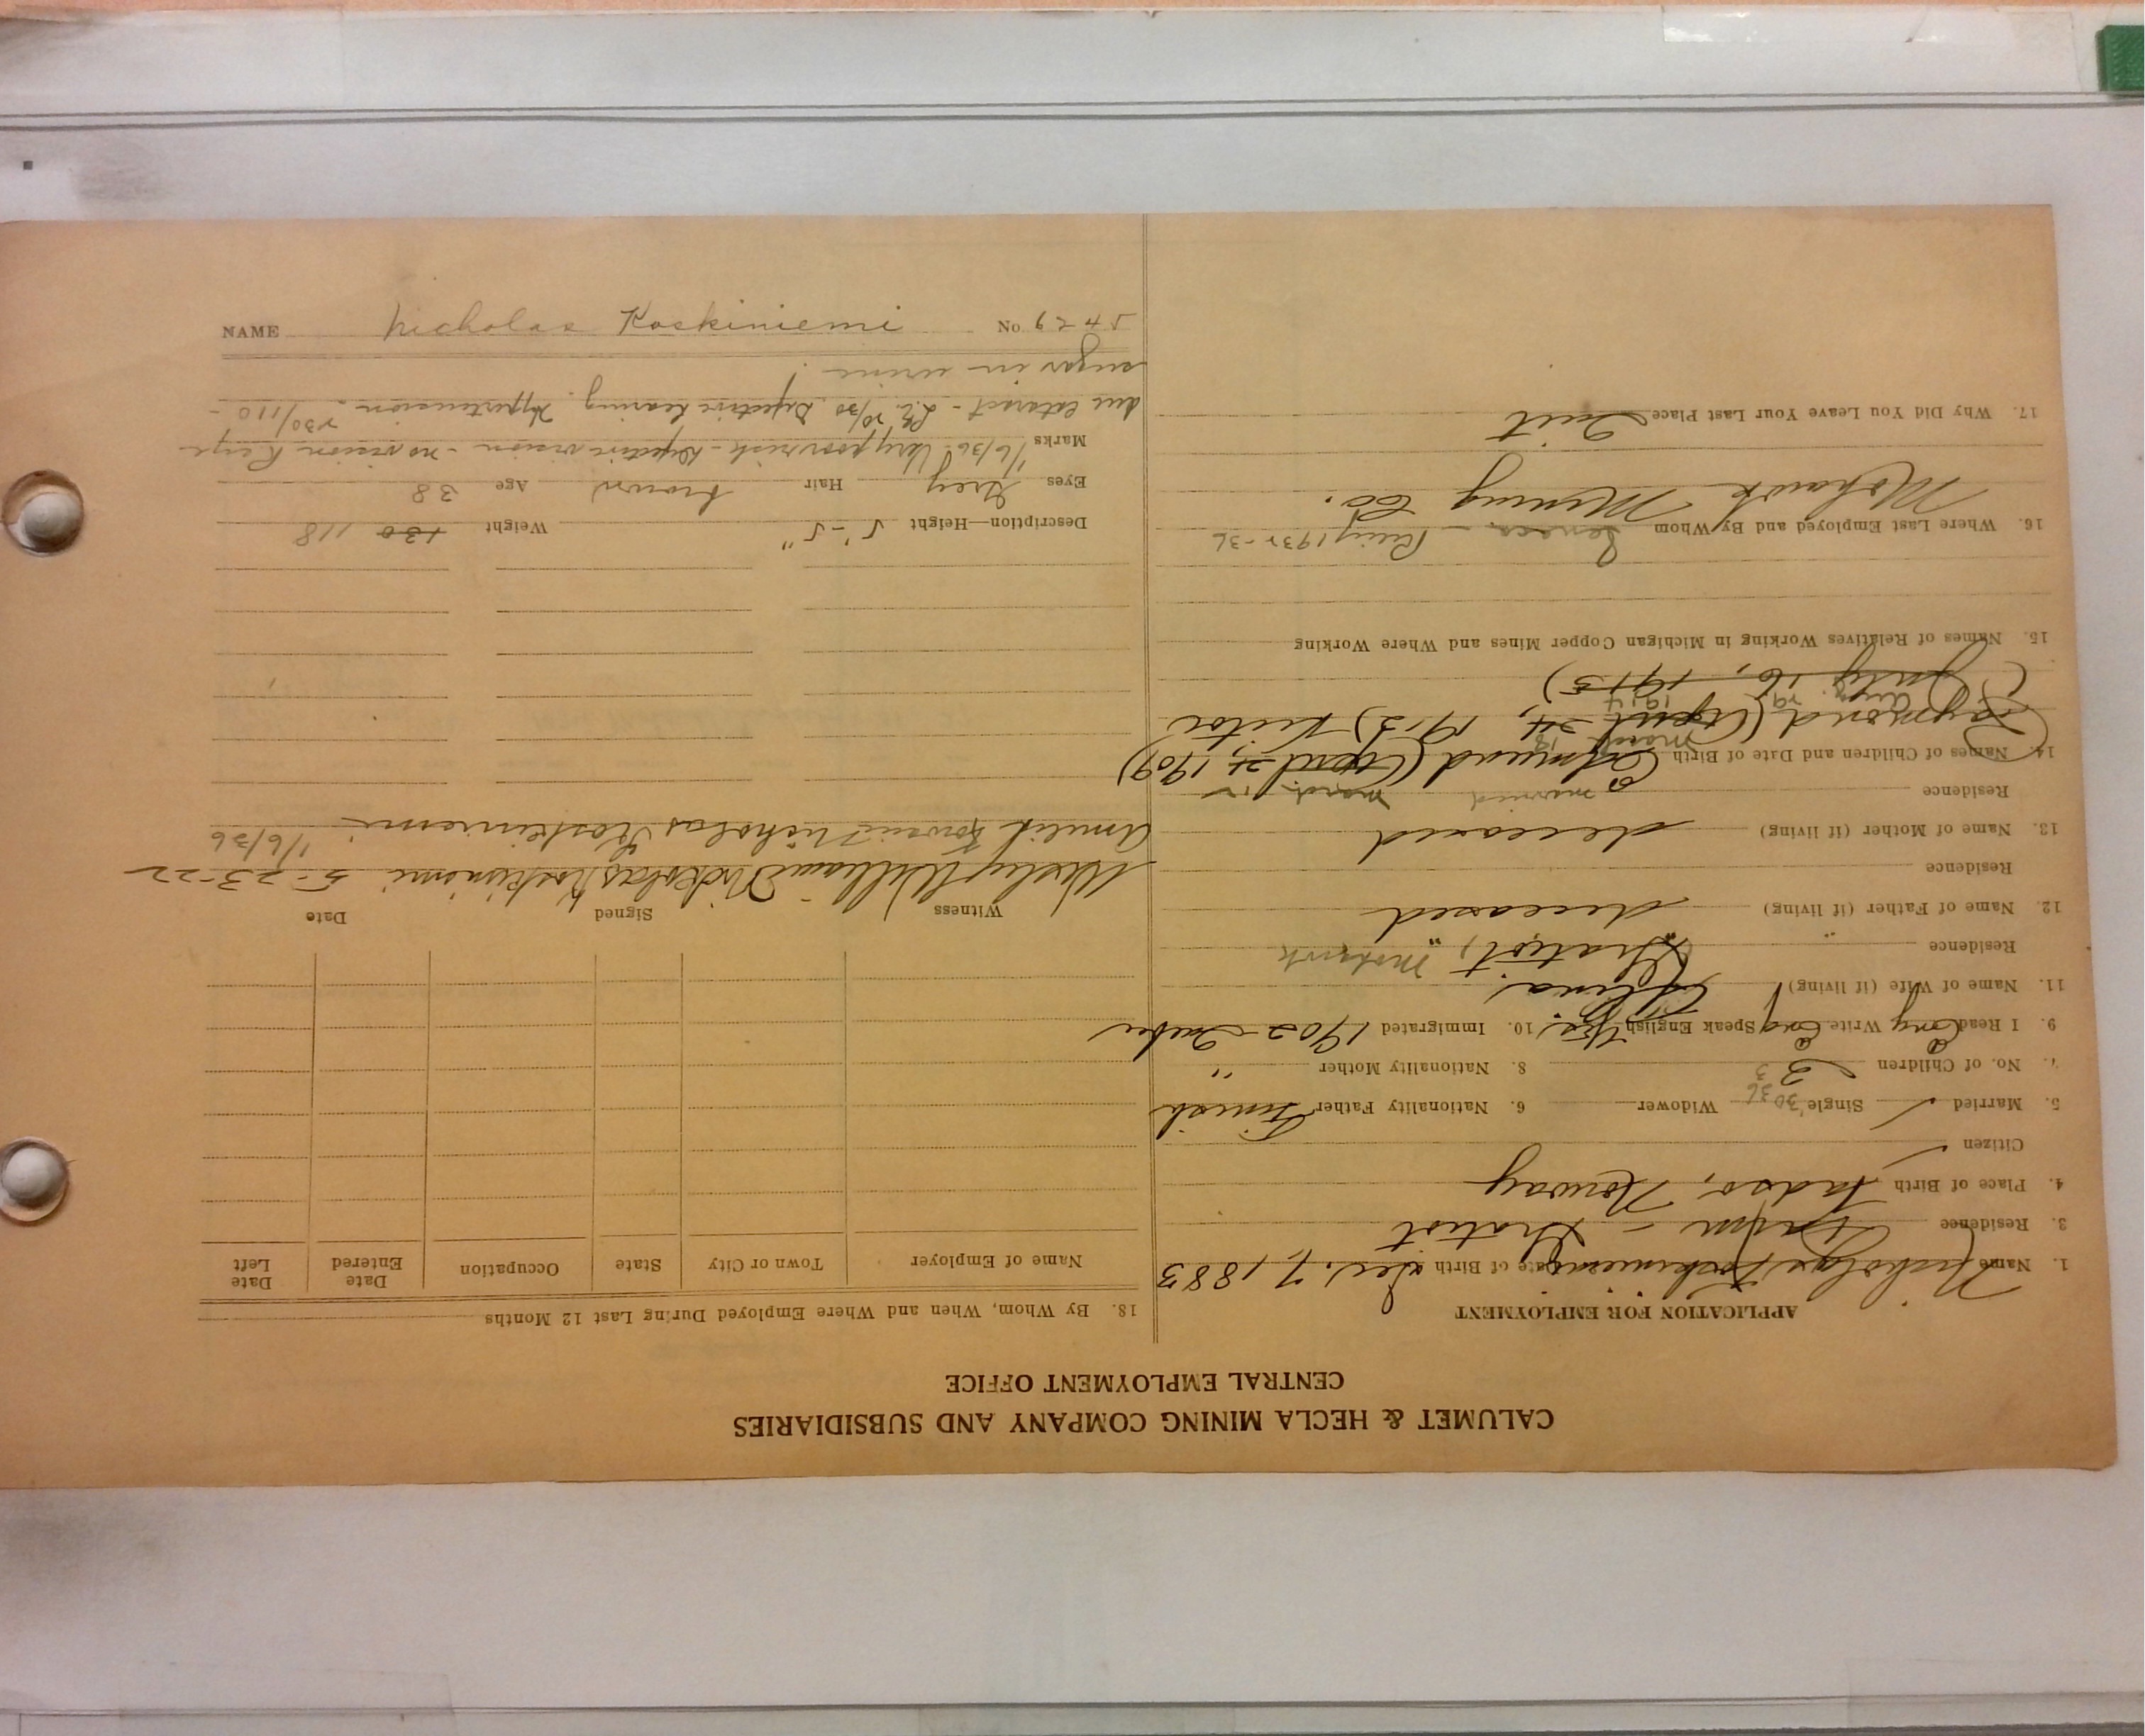 CALUMET & HECLA MINING COMPANY AND SUBSIDIARIES
CENTRAL EMPLOYMENT OFFICE
APPLICATION FOR EMPLOYMENT
1. Name Nicholas Koskiniemi 2. Date of Birth Dec. 7, 1883
3. Residence Farm - Gratiot
4. Place of Birth Vadso, Norway
Citizen
5. Married ✓ Single '30 36 Widower 6. Nationality Father Finnish
7. No. of Children 3 3 8. Nationality Mother "
9. I Read Eng Write Eng Speak English Yes. 10. Immigrated 1902
11. Name of Wife (if living)
Residence " Gratiot, " Mohawk
12. Name of Father (if living) deceased
Residence
13. Name of Mother (if living) deceased
Residence
married
14. Names of Children and Date of Birth Edmund (April 21, 1909)
March 18
Raymond (April 24, 1912) Victor
Aug. 19, 1914
(July 16, 1915)
15. Names of Relatives Working in Michigan Copper Mines and Where Working
16. Where Last Employed and By Whom Seneca -
Mohawk Mining Co.
17. Why Did You Leave Your Last Place Quit
18. By Whom, When and Where Employed During Last 12 Months
Name of Employer Town or City State Occupation Date Entered Date Left
Witness Signed Date
Nickolas Koskiniemi 5-23-22
Nicholas Koskiniemi 1/6/36
Description—Height 5'-5" Weight 130 118
Eyes Grey Hair brown Age 38
Marks 1/6/36 Very poor risk - Defective vision - no vision R eye
due cataract - L.E. 20/30 Defective hearing. Hypertension - 230/110 -
sugar in urine !
NAME Nicholas Koskiniemi No. 6245